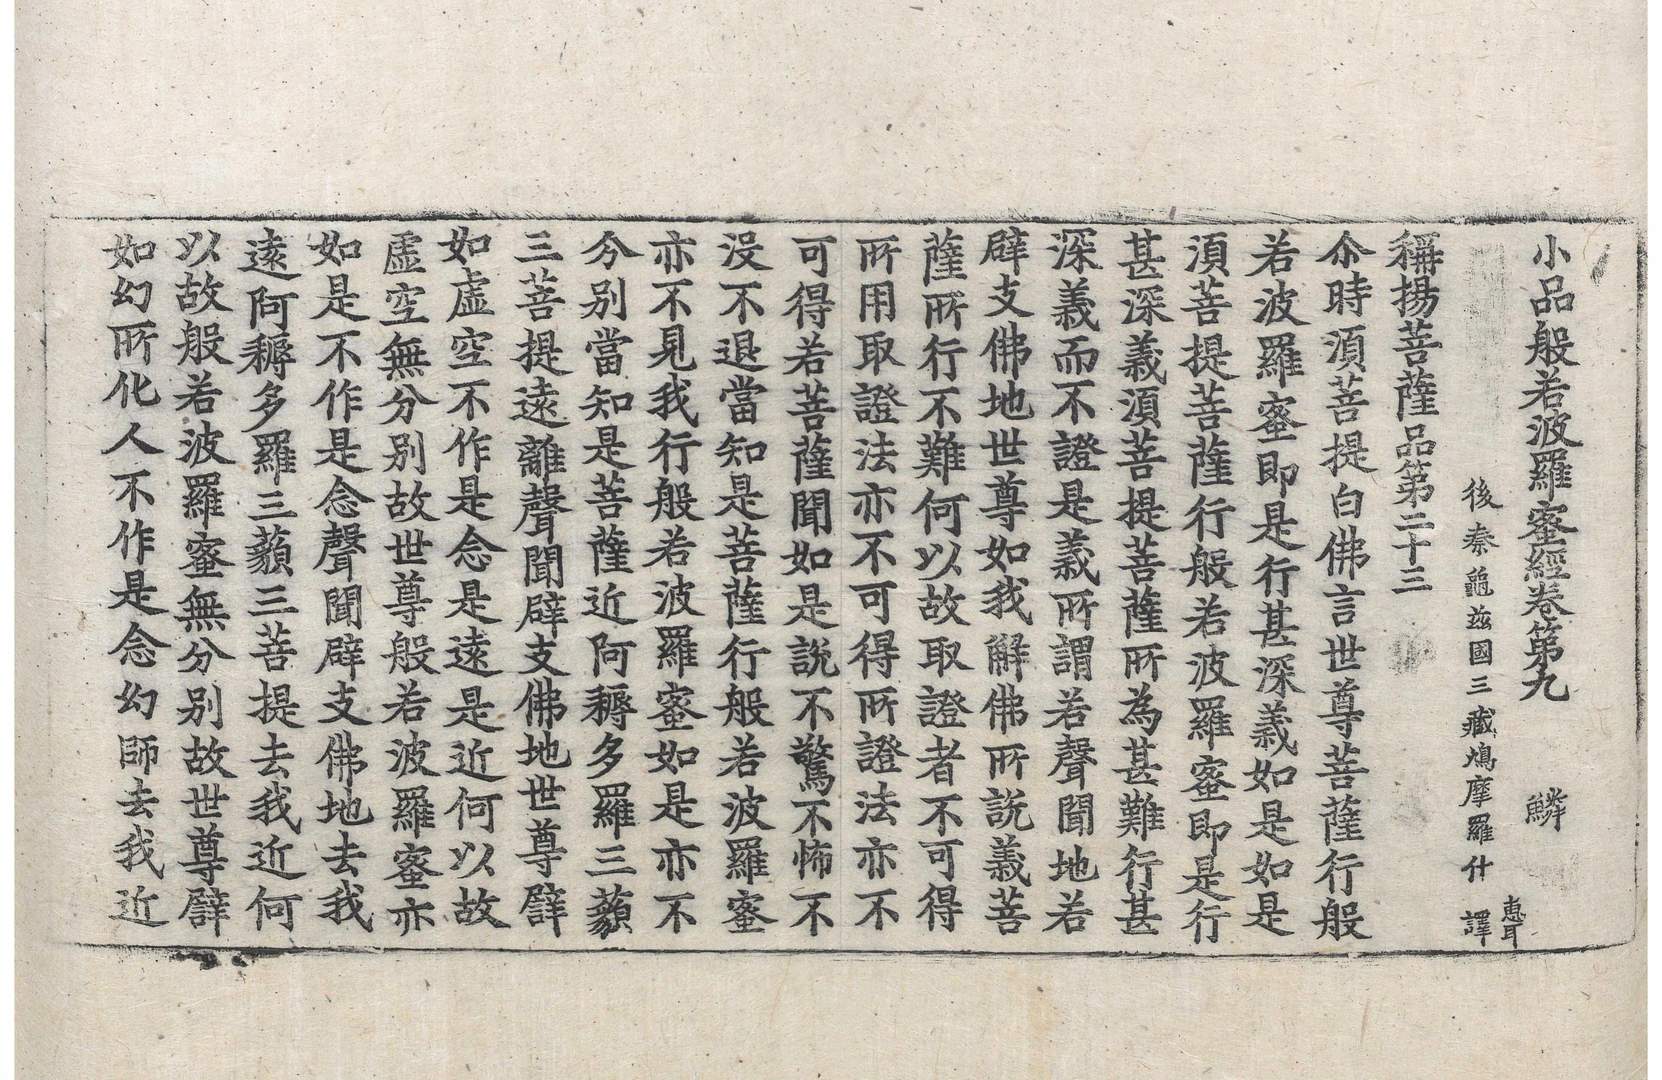 小品般若波羅蜜經卷第九 鱗
後秦龜茲國三藏鳩摩羅什 譯
惠耳
稱揚菩薩品第二十三
尒時湏菩提白佛言世尊菩薩行般
若波羅蜜即是行甚深義如是如是
湏菩提菩薩行般若波羅蜜即是行
甚深義湏菩提菩薩所為甚難行甚
深義而不證是義所謂若聲聞地若
辟支佛地世尊如我解佛所說義菩
薩所行不難何以故取證者不可得
所用取證法亦不可得所證法亦不
可得若菩薩聞如是說不驚不怖不
没不退當知是菩薩行般若波羅蜜
亦不見我行般若波羅蜜如是亦不
分別當知是菩薩近阿耨多羅三藐
三菩提遠離聲聞辟支佛地世尊譬
如虛空不作是念是遠是近何以故
虛空無分別故世尊般若波羅蜜亦
如是不作是念聲聞辟支佛地去我
遠阿耨多羅三藐三菩提去我近何
以故般若波羅蜜無分別故世尊譬
如幻所化人不作是念幻師去我近